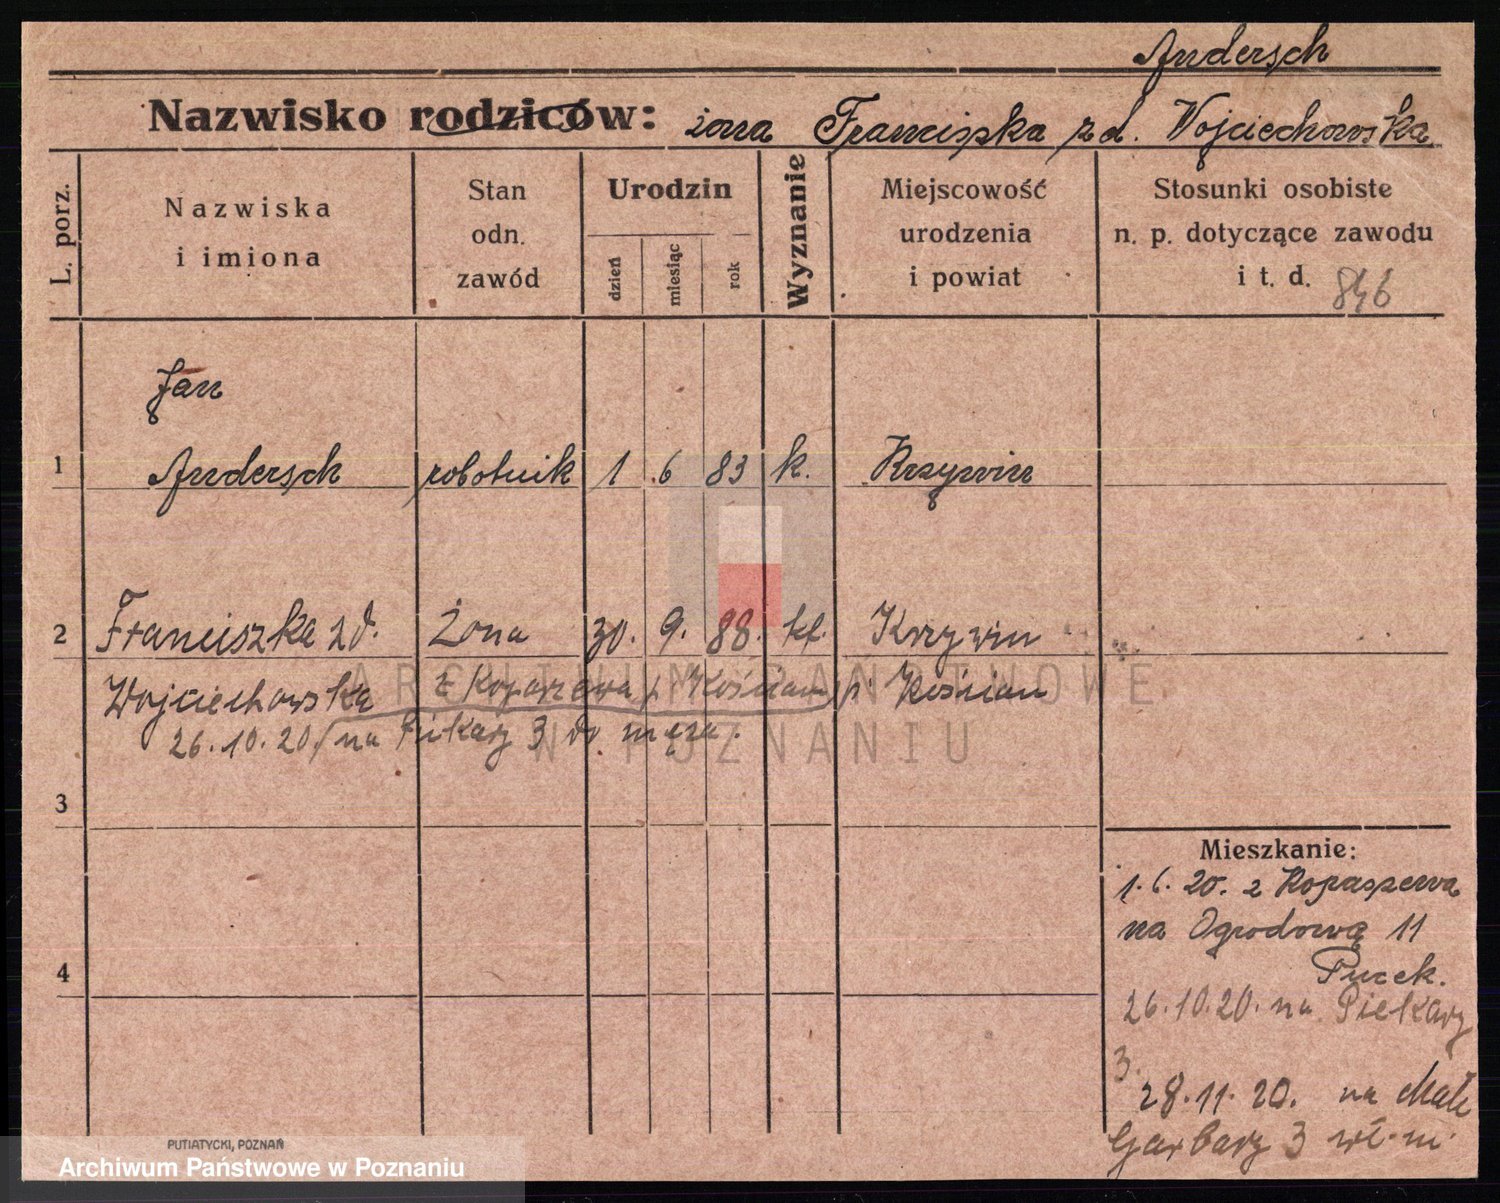 Andersch
Nazwisko rodziców: żona Franciszka zd. Wojciechowska
L. porz.
Nazwiska
i imiona
Stan
odn.
zawód
Urodzin
dzień
miesiąc
rok
Wyznanie
Miejscowość
urodzenia
i powiat
Stosunki osobiste
n. p. dotyczące zawodu
i t. d. 846
Jan
1 Andersch robotnik 1 6 83 k. Krzywin
2 Franciszka zd. Żona 30. 9. 88. kt. Krzywin
Wojciechowska z Kopaszewa p Kościan p. Kościan
26.10.20 na Piekary 3 do męża.
3
4
Mieszkanie:
1.6.20. z Kopaszewa
na Ogrodową 11
Pucek.
26.10.20. na Piekary
3.
28.11.20. na Małe
Garbary 3 wł. m.
PUTIATYCKI, POZNAŃ
ARCHIWUM PAŃSTWOWE
W POZNANIU
Archiwum Państwowe w Poznaniu